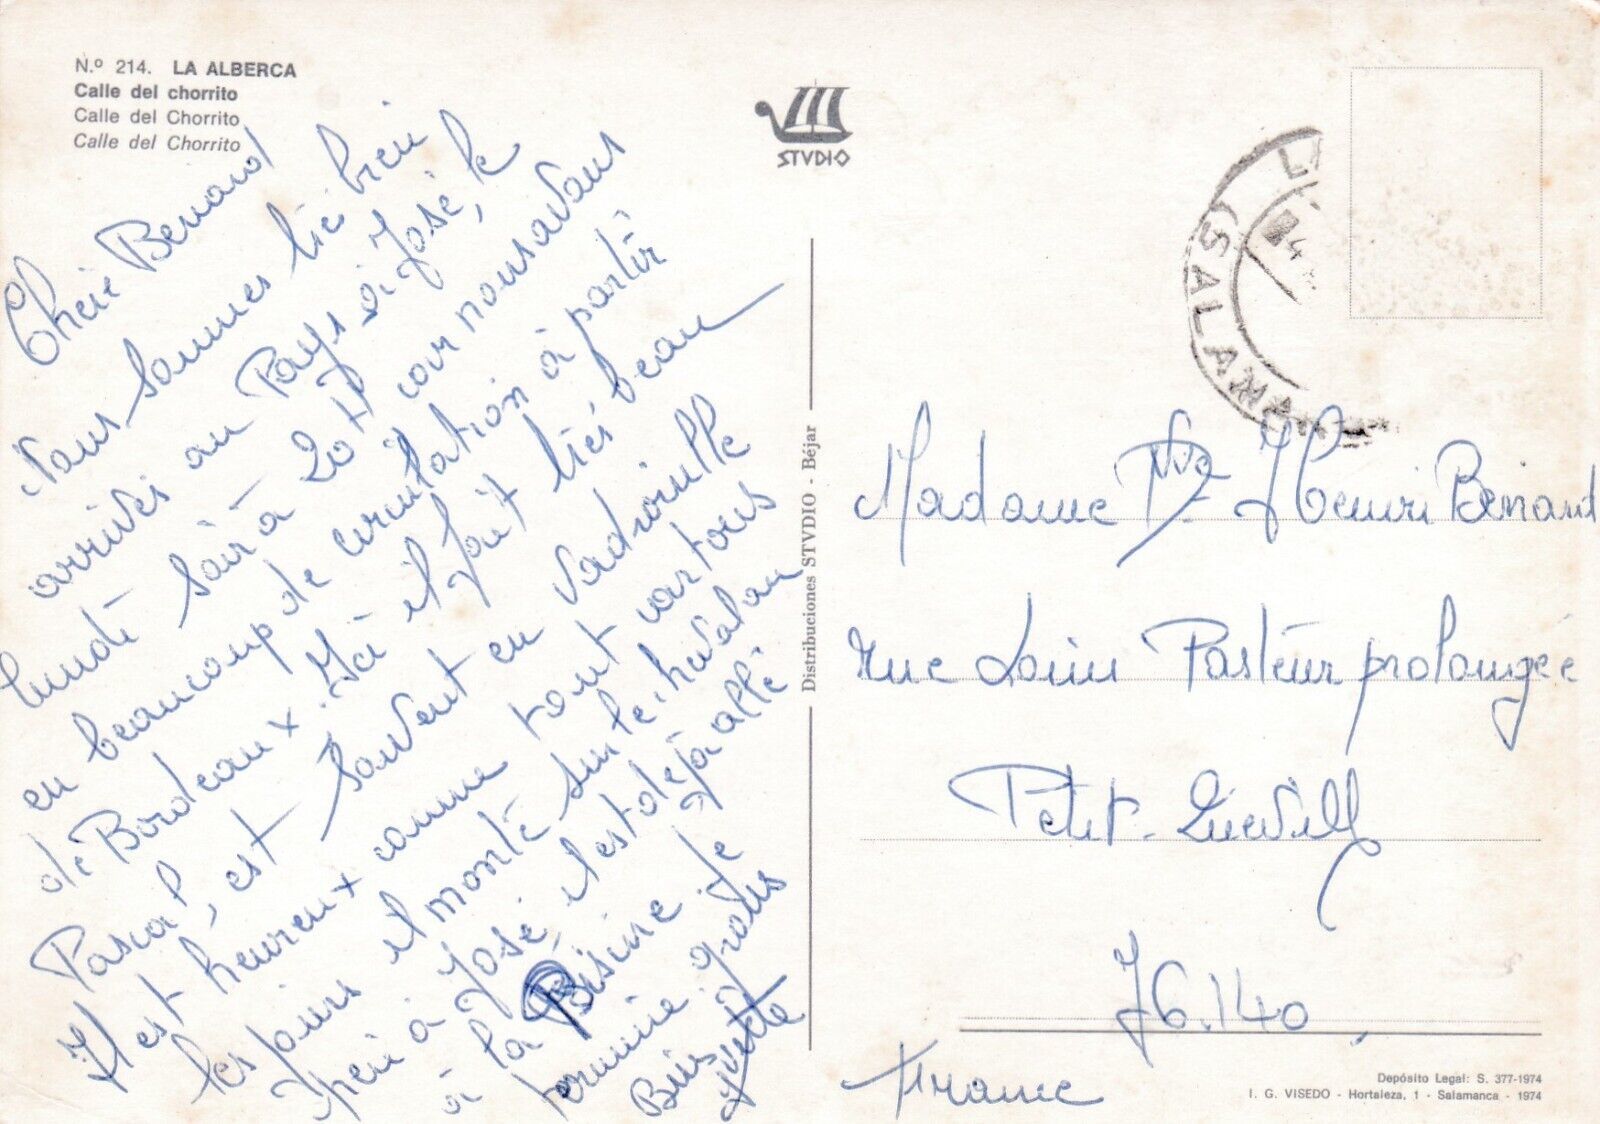 N.º 214. LA ALBERCA
Calle del chorrito
Calle del Chorrito
Calle del Chorrito
STVDIO
Cherie Benard
Nous sommes tiés bien
arrivés au Pays di José, le
lundi soir à 20h car nous avons
eu beaucoup de circulation à partir
de Bordeaux. Ici il fait tiés beau
Pascal, est souvent en vadrouille
Il est heureux comme tout
les jours il monté sur le cheval au
à José, il est déjà allé
à la Piscine le
gratis
Bises
Yvette
Distribuciones STVDIO - Béjar
(SALAMA
Madame Vve Henri Benard
rue Louis Pasteur prolongée
Petit-
76.140
France
Depósito Legal: S. 377-1974
I. G. VISEDO - Hortaleza, 1 - Salamanca - 1974